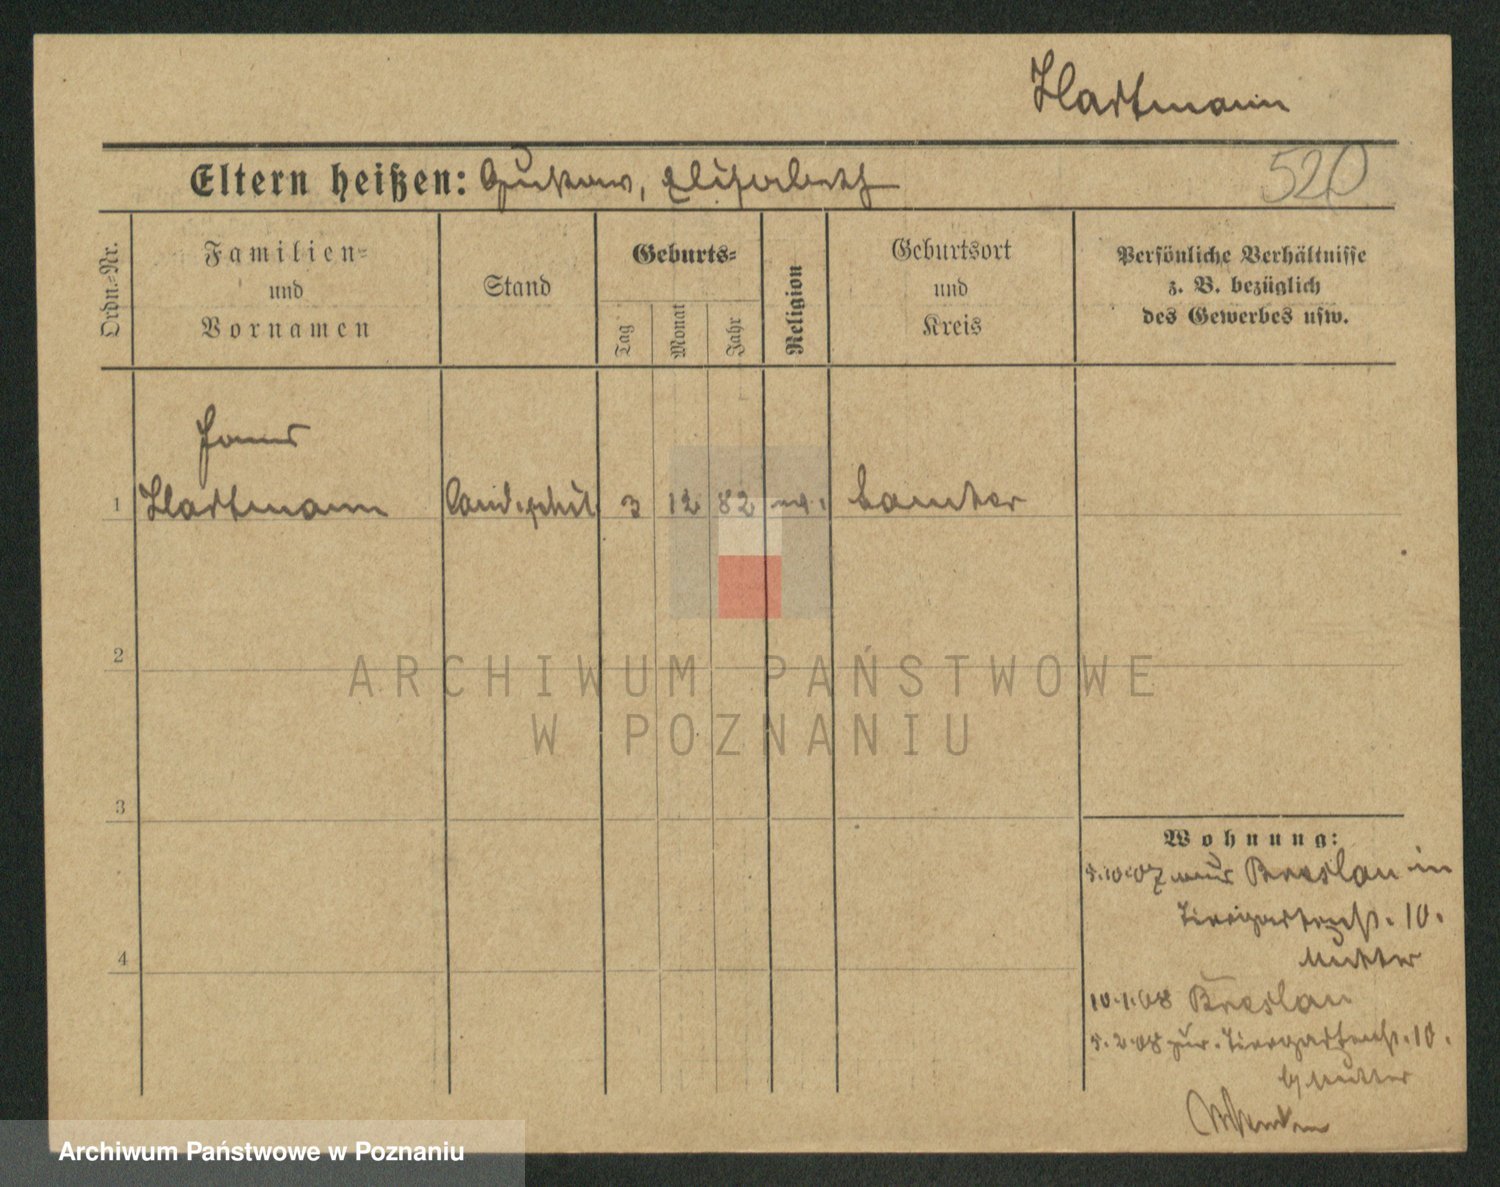 Hartmann
Eltern heißen: Gustav, Elisabeth
520
Ordn.-Nr.
Familien-
und
Vornamen
Stand
Geburts-
Tag
Monat
Jahr
Religion
Geburtsort
und
Kreis
Persönliche Verhältnisse
z. B. bezüglich
des Gewerbes usw.
Hans
1 Hartmann 3 12 82 ev. Samter
2
3
4
Wohnung:
5.10.07 aus Breslau in
Tiergartenstr. 10.
Mutter
10.1.08 Breslau
5.2.08 zur. Tiergartenstr. 10.
b/ Mutter
ARCHIWUM PAŃSTWOWE
W POZNANIU
Archiwum Państwowe w Poznaniu